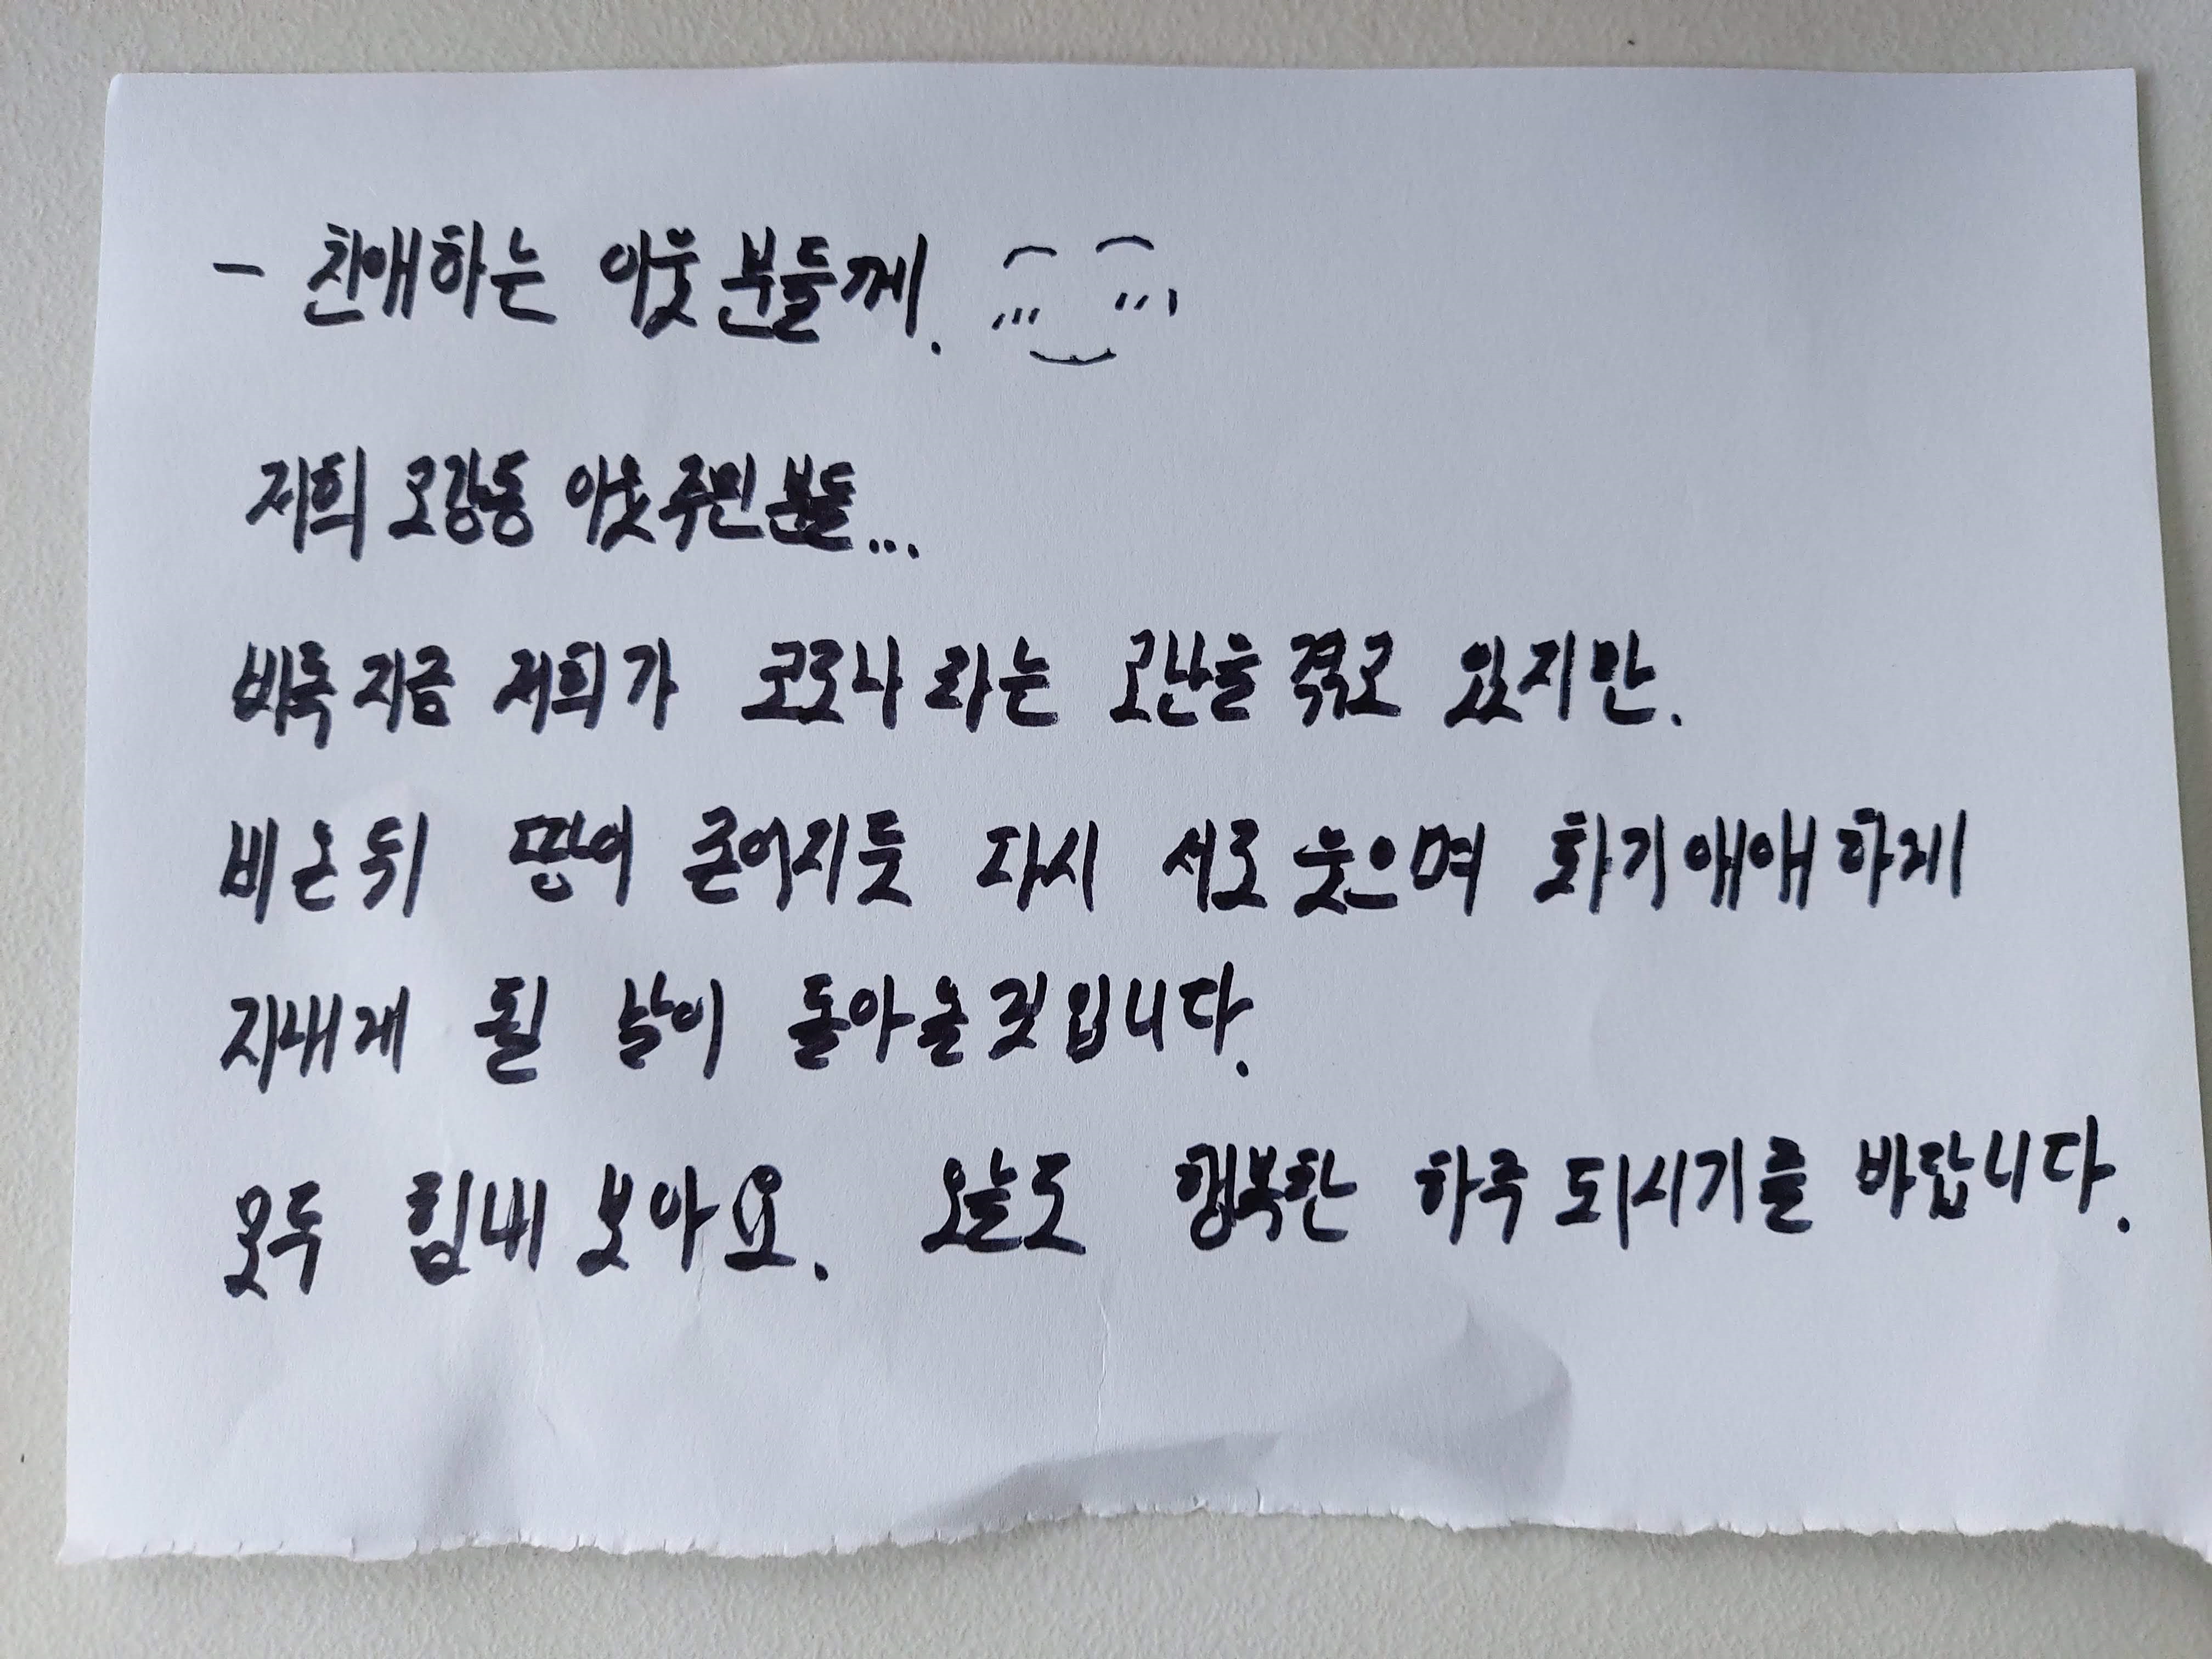 - 친애하는 이웃분들께.
저희 오강동 이웃주민분들...
비록 지금 저희가 코로나 라는 고난을 겪고 있지만.
비온뒤 땅이 굳어지듯 다시 서로 웃으며 화기애애하게
지내게 될 날이 돌아올것입니다.
모두 힘내 보아요. 오늘도 행복한 하루 되시기를 바랍니다.